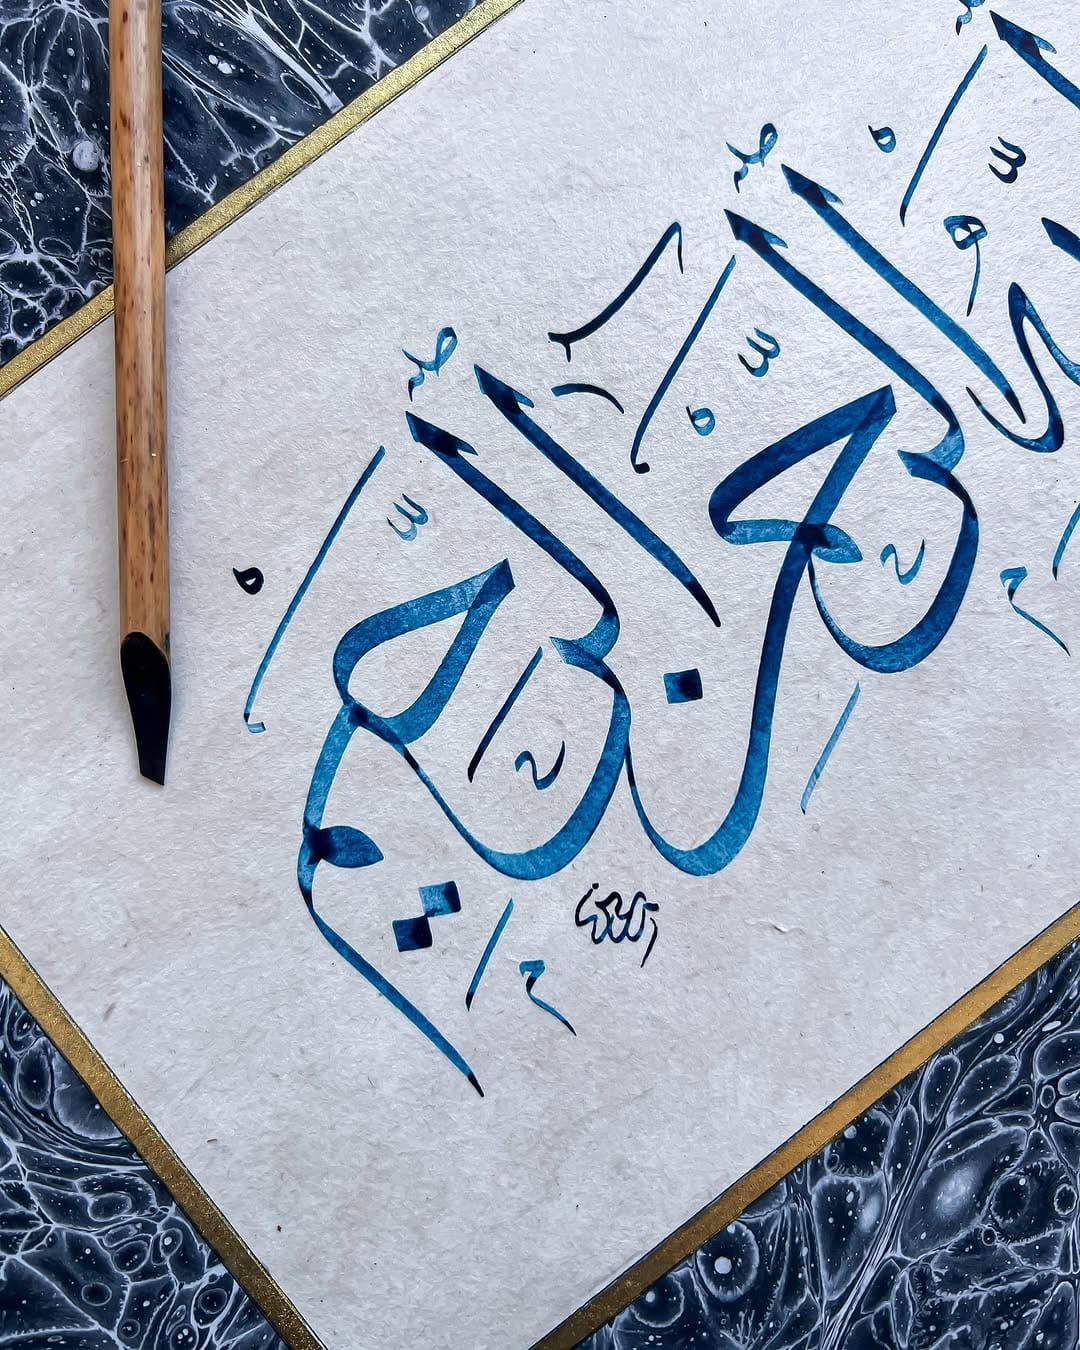 الرَّحْمٰنِ الرَّحِيمِ